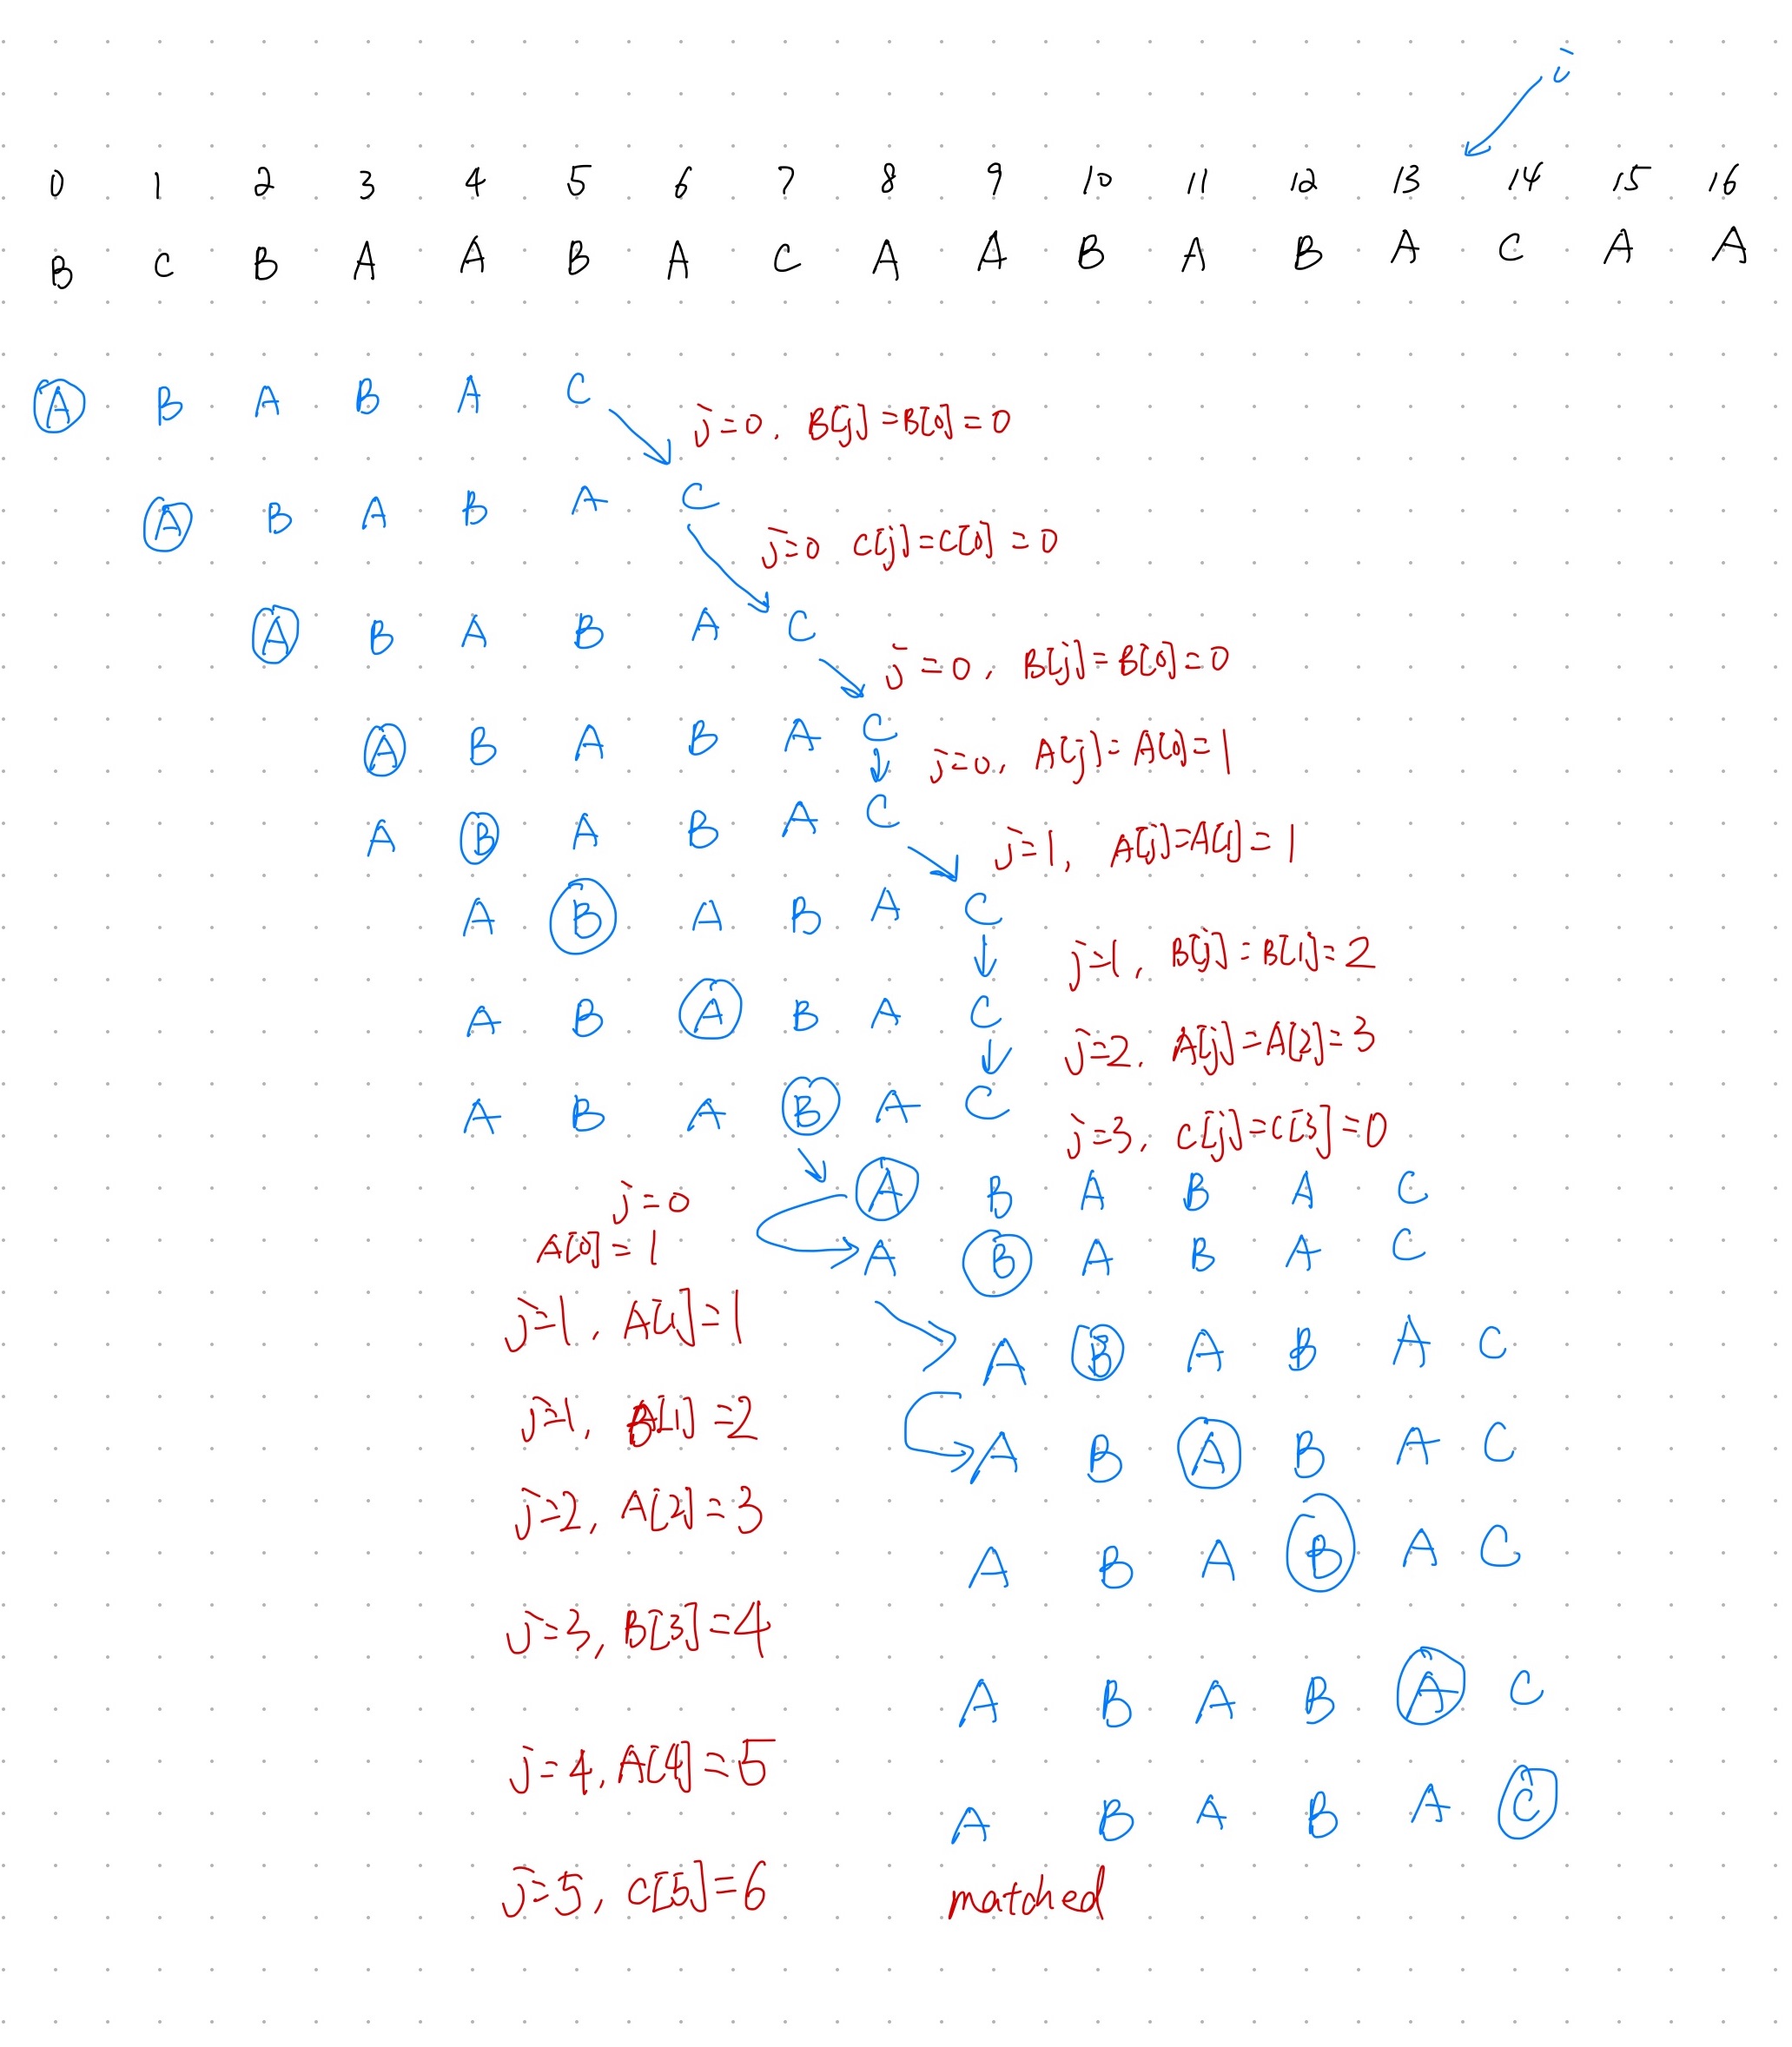 i
0 1 2 3 4 5 6 7 8 9 10 11 12 13 14 15 16
B C B A A B A C A A B A B A C A A
A B A B A C
j=0, B[j]=B[0]=0
A B A B A C
j=0 C[j]=C[0]=0
A B A B A C
j=0, B[j]=B[0]=0
A B A B A C
j=0, A[j]=A[0]=1
A B A B A C
j=1, A[j]=A[1]=1
A B A B A C
j=1, B[j]=B[1]=2
A B A B A C
j=2, A[j]=A[2]=3
A B A B A C
j=3, C[j]=C[3]=0
A B A B A C
j=0
A[0]=1
A B A B A C
j=1, A[1]=1
A B A B A C
j=1, B[1]=2
A B A B A C
j=2, A[2]=3
A B A B A C
j=3, B[3]=4
A B A B A C
j=4, A[4]=5
A B A B A C
j=5, C[5]=6
matched